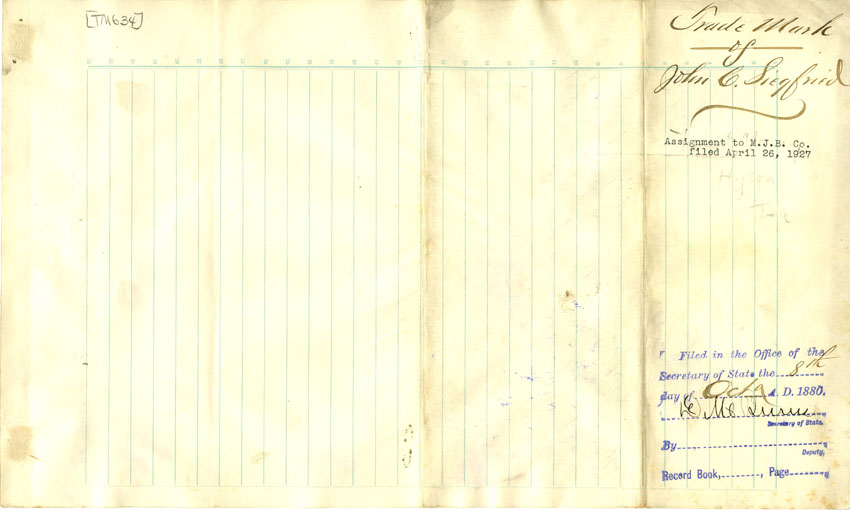 [TM634]
Trade Mark
of
John C. Siegfried
Assignment to M.J.B. Co.
filed April 26, 1927
Filed in the Office of the
Secretary of State the 8th
day of Oct A. D. 1880.
Secretary of State.
By
Deputy,
Record Book, , Page